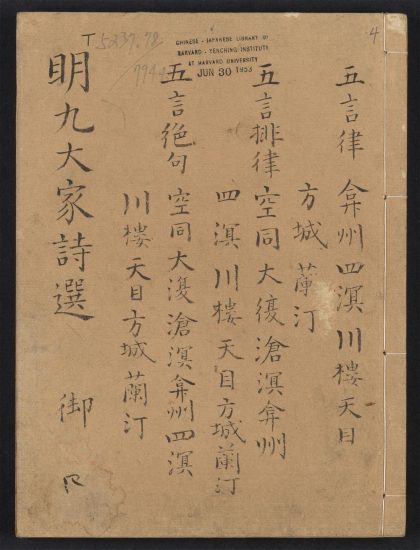 4
T 5237.78
7944
CHINESE - JAPANESE LIBRARY OF
HARVARD - YENCHING INSTITUTE
AT HARVARD UNIVERSITY
JUN 30 1953
五言律 弇州 四溟 川樓 天目
方城 蘭汀
五言排律 空同 大復 滄溟 弇州
四溟 川樓 天目 方城 蘭汀
五言絕句 空同 大復 滄溟 弇州 四溟
川樓 天目 方城 蘭汀
明九大家詩選 御